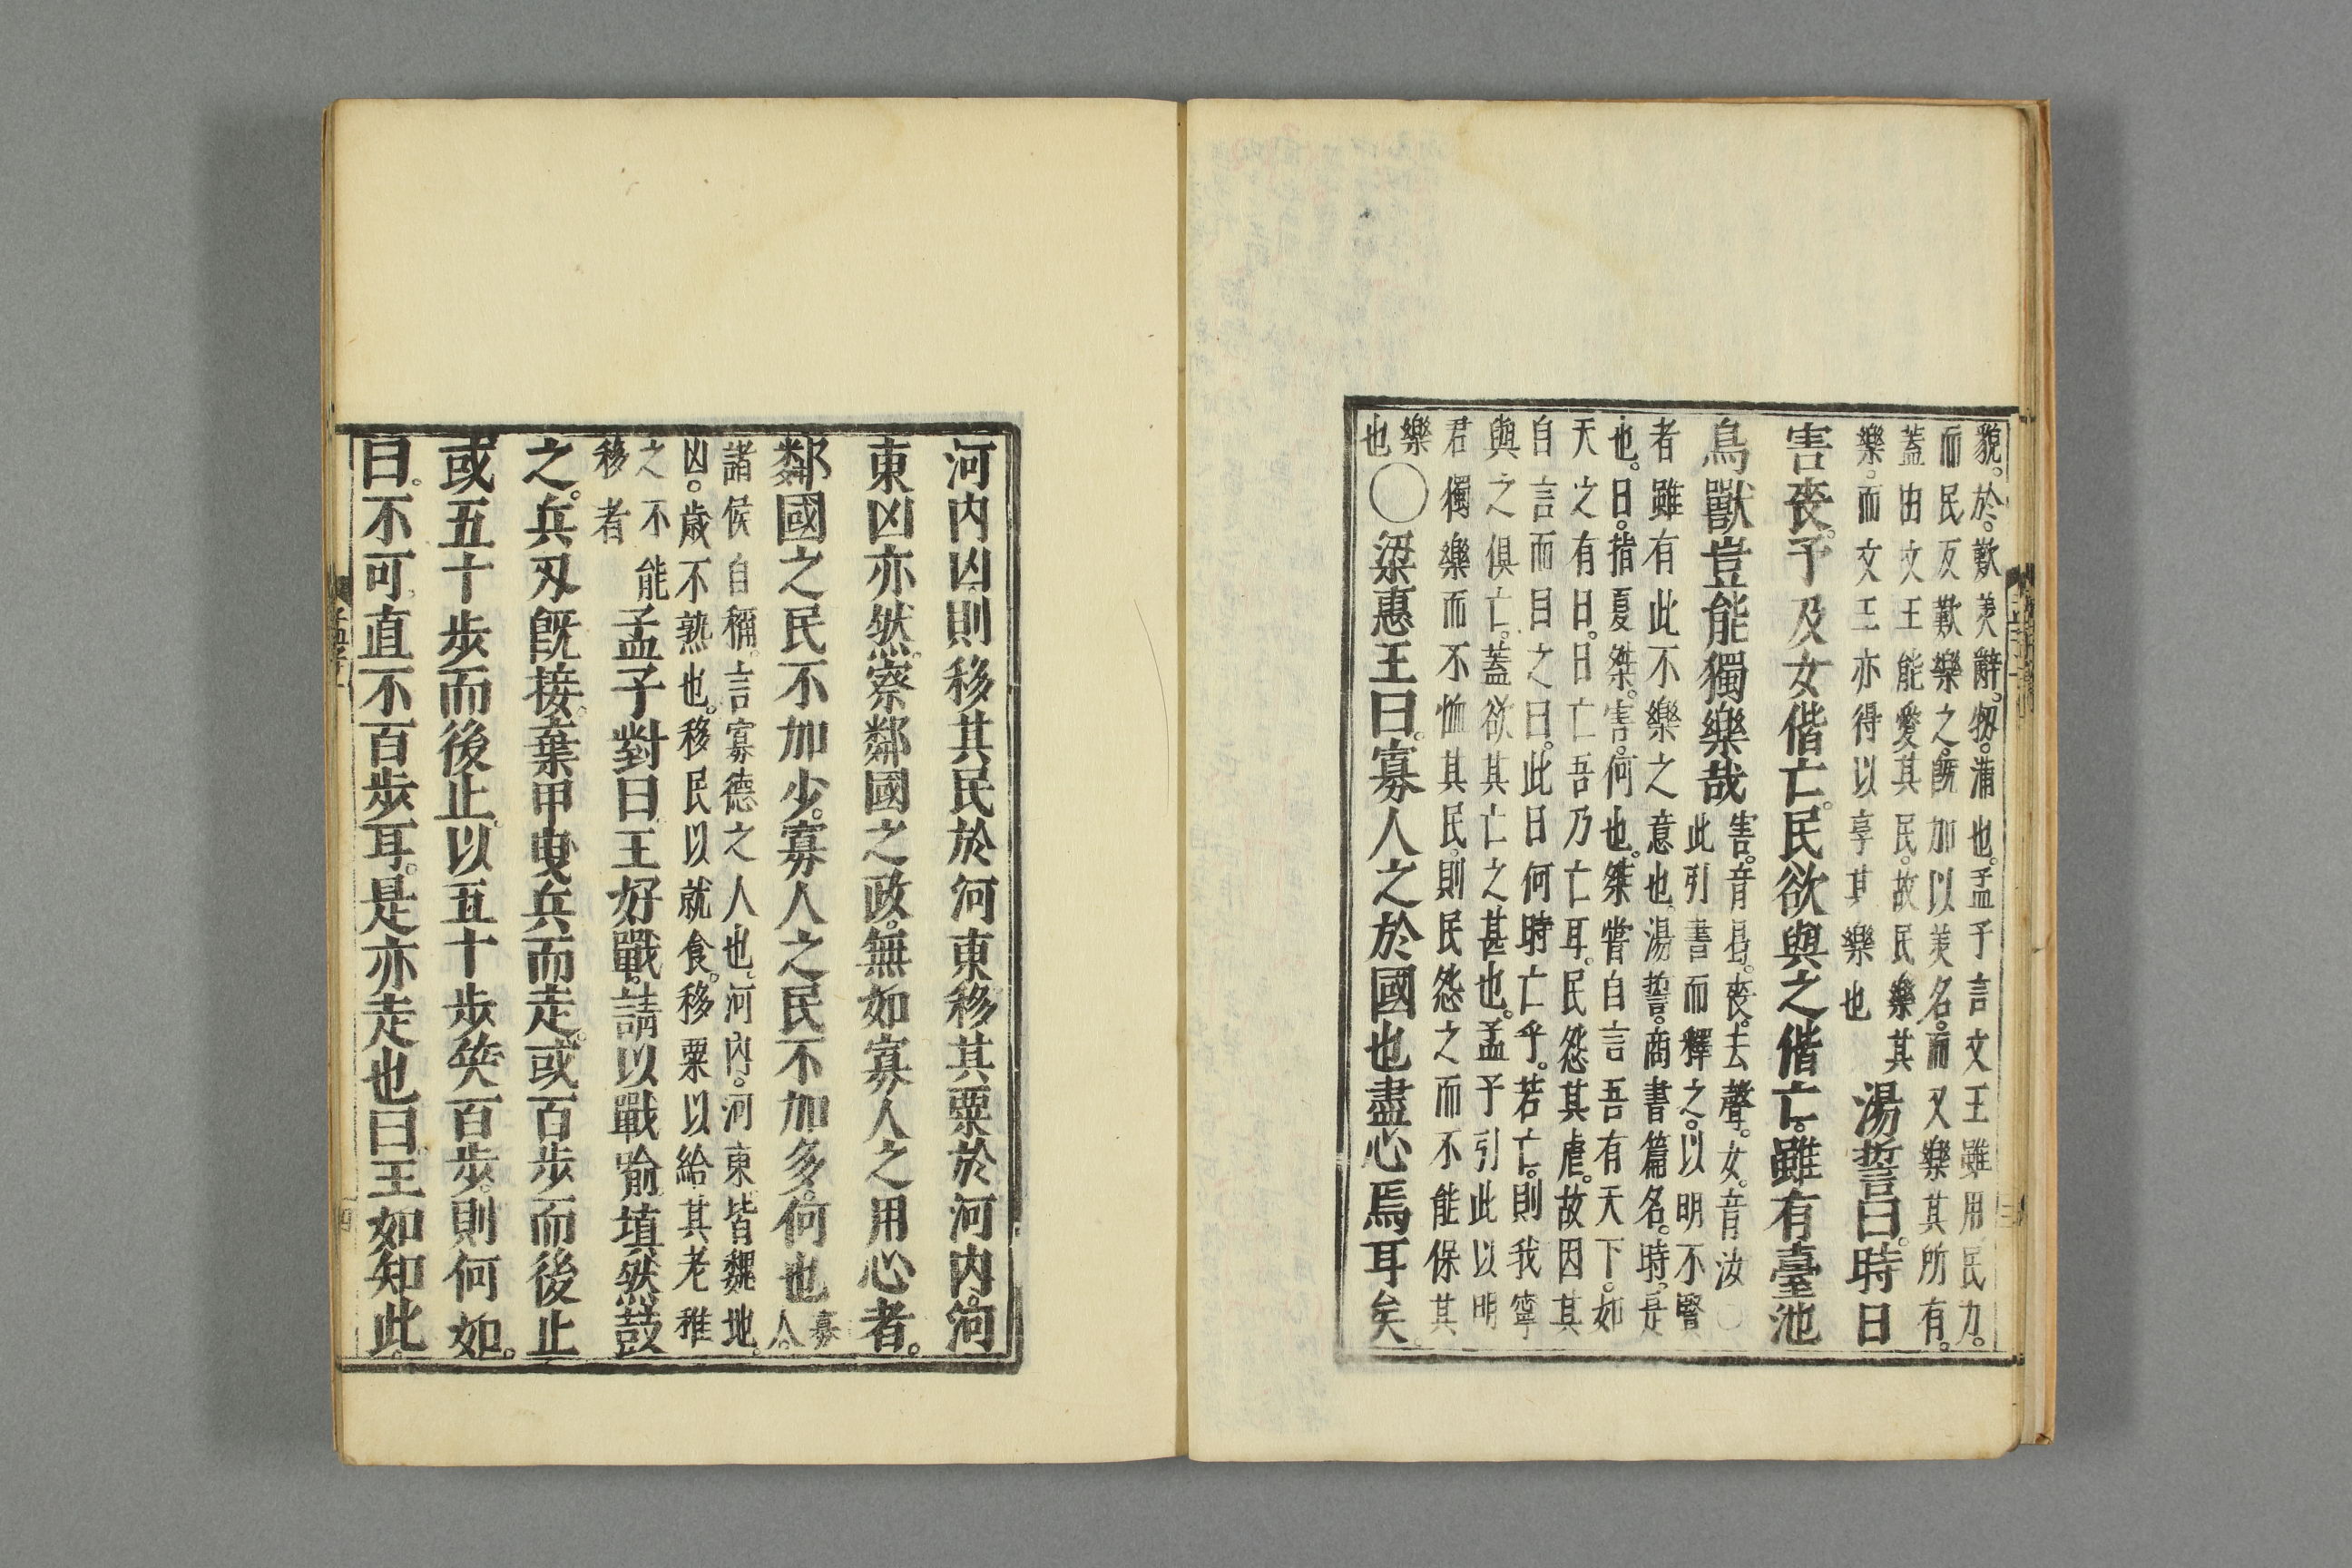 貌。於。歎美辭。牣。滿也。孟子言文王雖用民力。
而民反歡樂之。旣加以美名。而又樂其所有。
蓋由文王能愛其民。故民樂其
樂。而文王亦得以享其樂也
湯誓曰。時日
害喪。予及女偕亡。民欲與之偕亡。雖有臺池
鳥獸豈能獨樂哉
害。音曷。喪。去聲。女。音汝〇
此引書而釋之。以明不賢
者雖有此不樂之意也。湯誓。商書篇名。時。是
也。日。指夏桀。害。何也。桀嘗自言吾有天下。如
天之有日。日亡吾乃亡耳。民怨其虐。故因其
自言而目之曰。此日何時亡乎。若亡。則我寧
與之俱亡。蓋欲其亡之甚也。孟子引此以明
君獨樂而不恤其民。則民怨之而不能保其
樂
也
〇梁惠王曰。寡人之於國也盡心焉耳矣。
河內凶則移其民於河東移其粟於河內。河
東凶亦然。察鄰國之政。無如寡人之用心者。
鄰國之民不加少。寡人之民不加多。何也
寡
人。
諸侯自稱。言寡德之人也。河內。河東皆魏地。
凶。歲不熟也。移民以就食。移粟以給其老稚
之不能
移者
孟子對曰王好戰。請以戰喻塡然鼓
之。兵刃旣接。棄甲曳兵而走。或百步而後止
或五十步而後止。以五十步笑百步。則何如。
曰。不可直不百步耳。是亦走也曰。王如知此。